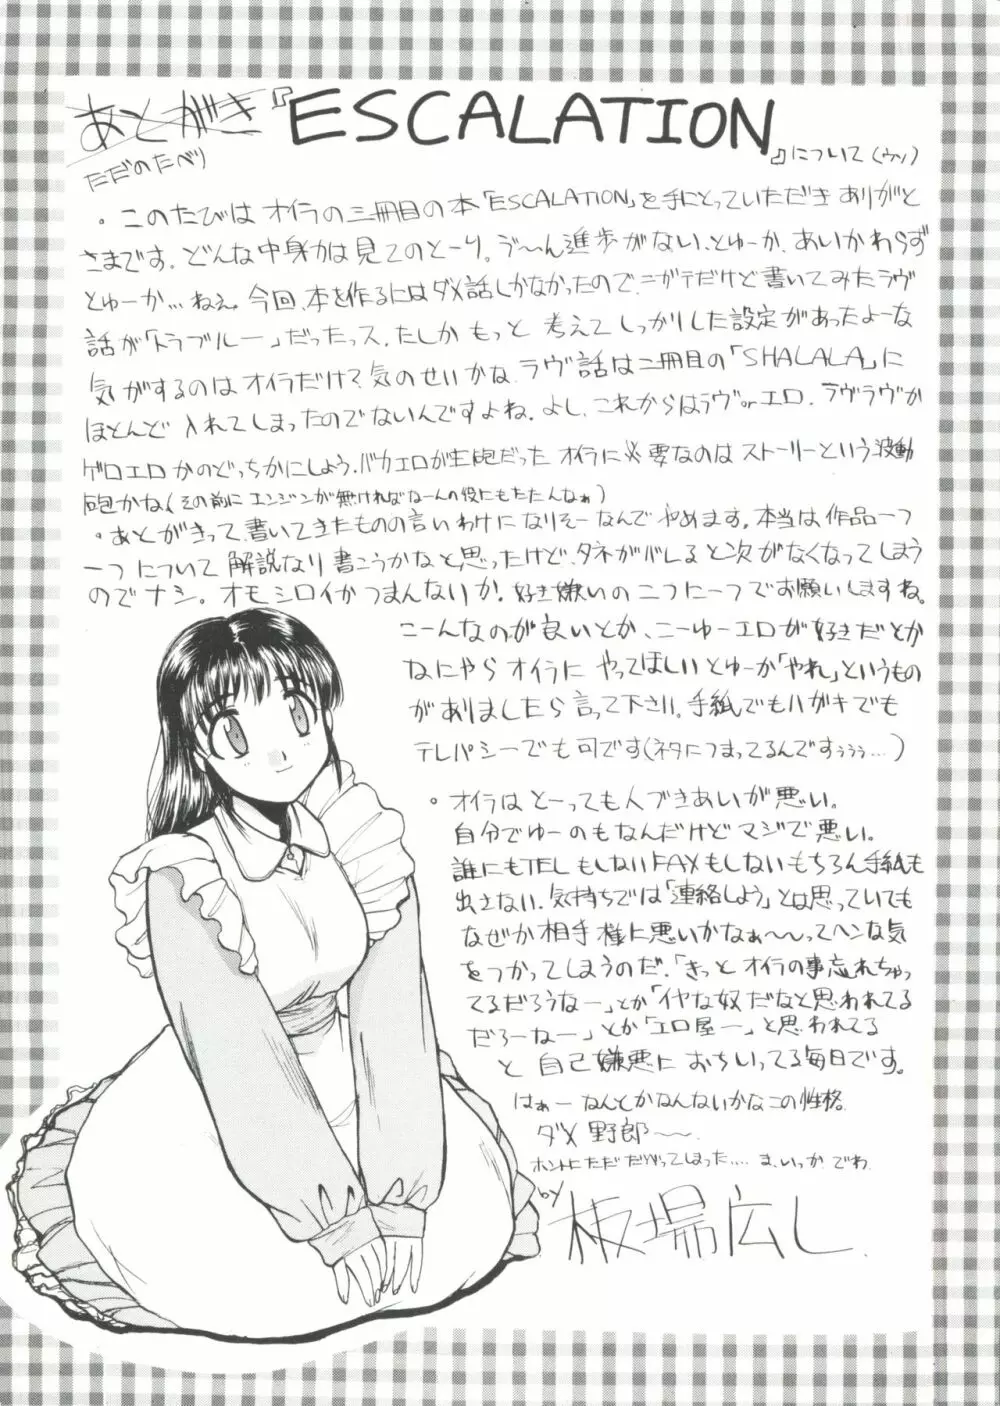 あとがき『ESCALATION』について(ウソ)
ただのたべり
・このたびは オイラの三冊目の本「ESCALATION」を手にとっていただき ありがと
さまです。どんな中身かは見てのとーり。う〜ん進歩がない、とゅーか、あいかわらず
とゅーか…ねぇ。今回、本を作るにはダメ話しかなかったので、ニガテだけど書いてみたラヴ
話が「トラブルー」だったっス。たしか もっと 考えてしっかりした設定があったよーな
気がするのはオイラだけ?気のせいかな。ラヴ話は二冊目の「SHALALA」に
ほとんど 入れてしまったのでないんですよね。よし、これからはラヴorエロ、ラヴラヴか
ゲロエロ かのどっちかにしよう。バカエロが主砲だった オイラに必要なのは ストーリーという波動
砲かな(その前に エンジンが無ければなーんの役にもたたんなぁ)
・あとがきって、書いてきたものの言いわけになりそーなんで やめます。本当は作品一つ
一つについて 解説なり書こうかなと思ったけど、タネがバレると次がなくなってしまう
のでナシ。オモシロイかつまんないか!好き嫌いの二つに一つでお願いしますね。
こーんなのが良いとか、こーゆーエロが好きだとか
なにやら オイラに やってほしいとゅーか「やれ」というもの
がありましたら言って下さい!。手紙でもハガキでも
テレパシーでも可です(ネタにつまってるんですぅぅぅ…)
・オイラはとーっても人づきあいが悪い。
自分でゆーのもなんだけどマジで悪い。
誰にもTELもしないFAXもしないもちろん手紙も
出さない。気持ちでは「連絡しよう」とは思っていても
なぜか相手様に悪いかなぁ〜〜ってヘンな気
をつかってしまうのだ。「きっと オイラの事忘れちゃっ
てるだろうなー」とか「イヤな奴だなと思われてる
だろーねー」とか「エロ屋ー」と思われてる
と 自己嫌悪におちいってる毎日です。
はぁーなんとかなんないかなこの性格。
ダメ野郎〜〜。
ホントにただ だべってしまった…. ま、いっか。でわ
by 板場広し.